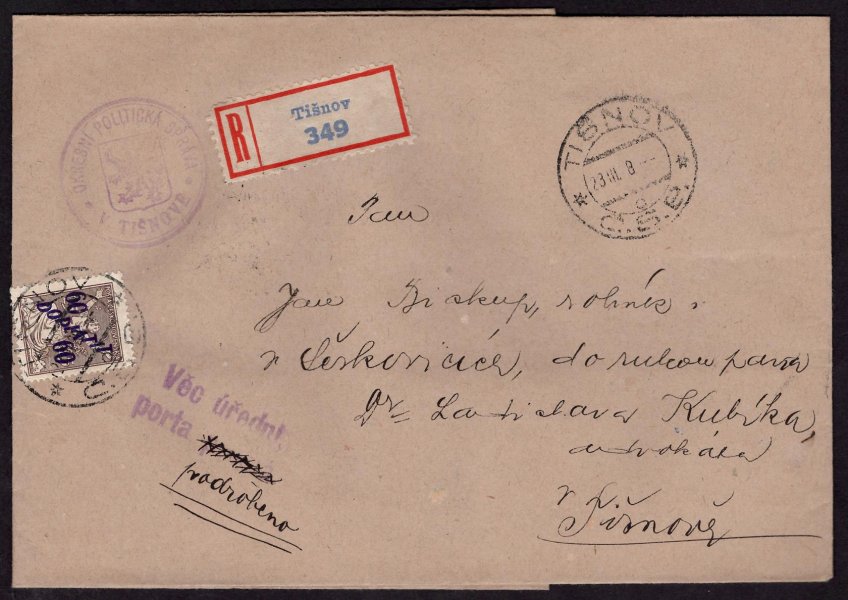 OKRESNÍ POLITICKÁ SPRÁVA
V TIŠNOVĚ
R
Tišnov
349
TIŠNOV
23 III. 8
Č.S.P.
Pan
Jan Biskup, rolník
v Šerkovicích, do rukou pana
Dr Ladislava Kubíka,
advokáta
v Tišnově
60
DOPLATIT
60
TIŠNOV
Věc úřední,
porta
podrobeno